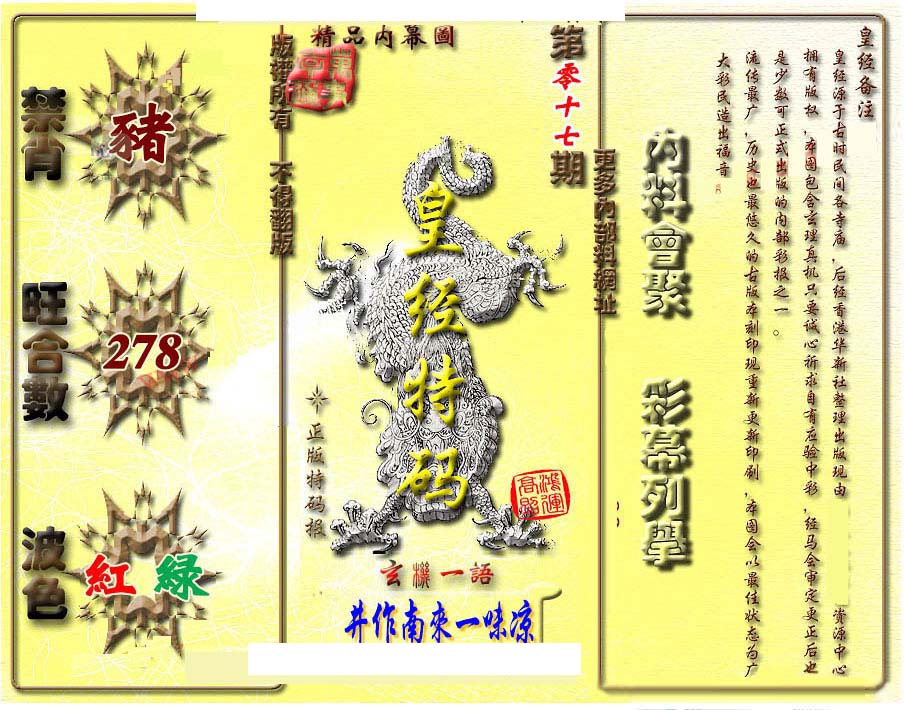 禁肖
豬
旺合數
278
波色
紅 綠
版權所有 不得翻版
精品内幕圖
第零十七期
皇经特码
正版特码报
鴻運高照
玄機一語
井作南來一味凉
更多内部料網址
内料會聚 彩幕列举
皇经备注
皇经源于古时民间各寺庙，后经香港华新社整理出版现由 资源中心
拥有版权，本图包含玄理真机只要诚心祈求自有应验中彩，经马会审定更正后也
是少数可正式出版的内部彩报之一。
流传最广，历史也最悠久的古版本刻印现重新更新印刷，本图会以最佳状态为广
大彩民造出福音